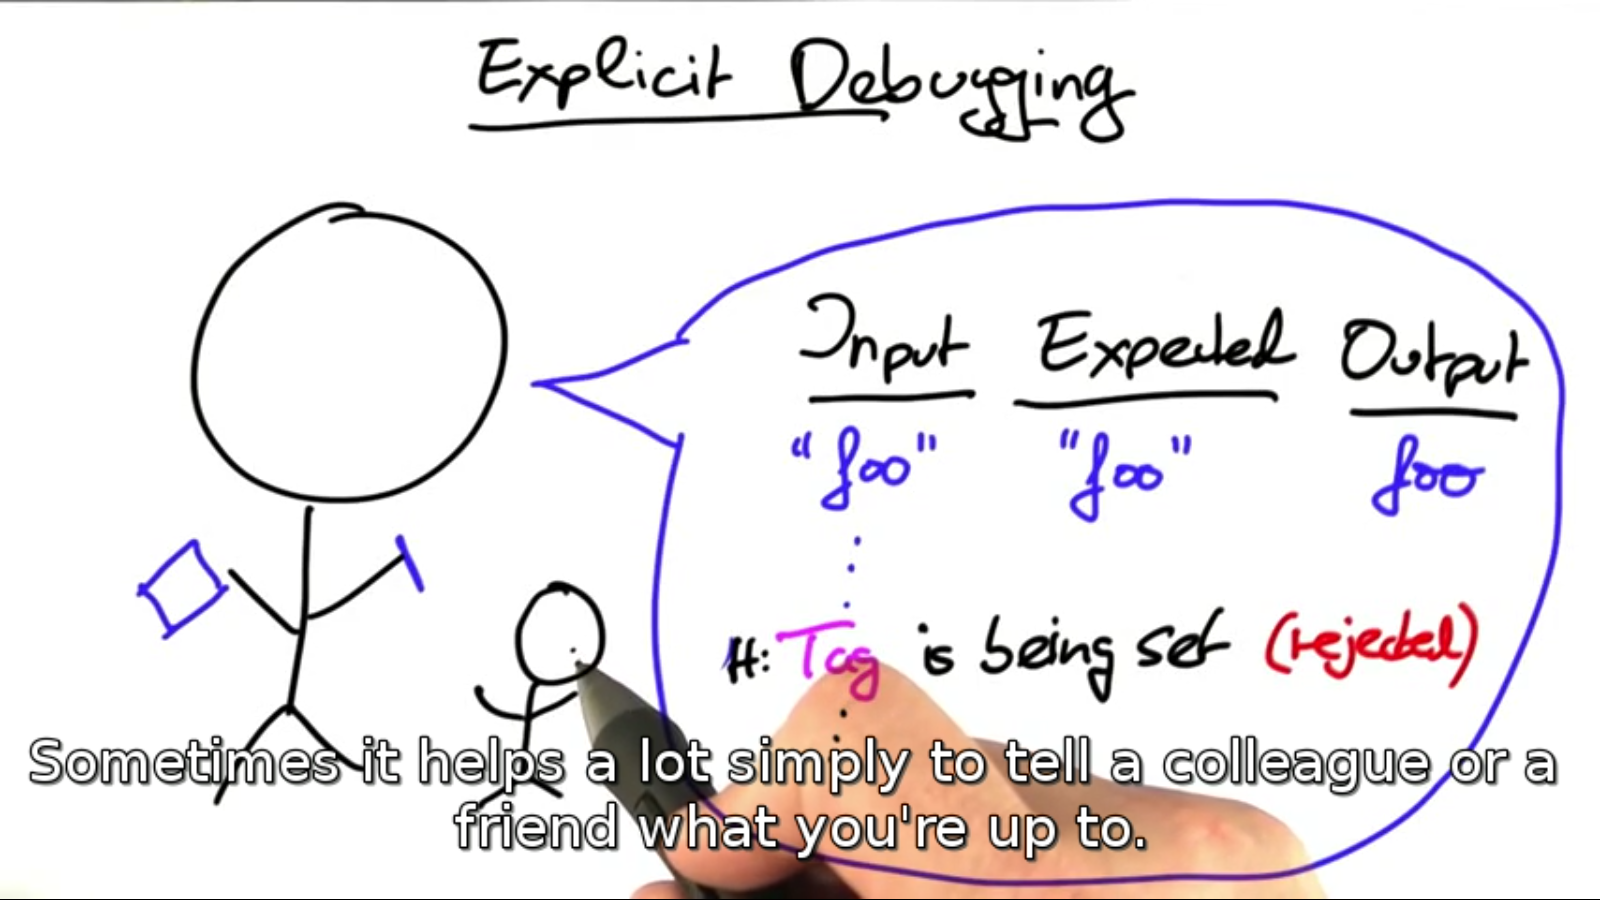 Explicit Debugging
Input Expected Output
"foo" "foo" foo
H: Tag is being set (rejected)
Sometimes it helps a lot simply to tell a colleague or a
friend what you're up to.